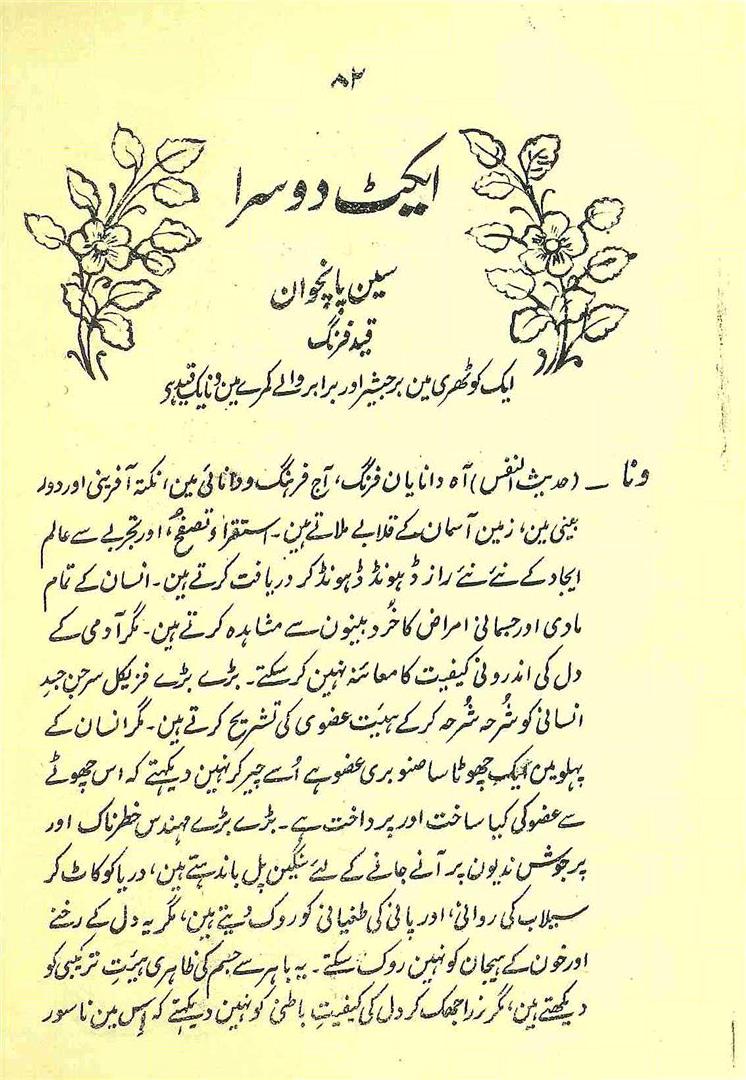 ۵۲
ایکٹ دوسرا
سین پانچوان
قید فرنگ
ایک کوٹھری مین برجیشر اور برابر والے کمرے مین ونایک قید ہی
ونا – (حدیث النفس) آہ دانایان فرنگ، آج فرہنگ و دانائی مین، نکتہ آفرینی اور دور
بینی مین، زمین آسمان کے قلابے ملاتے ہین۔ استقراء و تصفح، اور تجربے سے عالم
ایجاد کے نئے نئے راز ڈھونڈ ڈھونڈ کر دریافت کرتے ہین۔ انسان کے تمام
مادی اور جسمانی امراض کا خُرد بینون سے مشاہدہ کرتے ہین۔ مگر آدمی کے
دل کی اندرونی کیفیت کا معائنہ نہین کر سکتے۔ بڑے بڑے فزیکل سرجن جسدِ
انسانی کو شُرحہ شُرحہ کر کے ہیئت عضوی کی تشریح کرتے ہین۔ مگر انسان کے
پہلو مین ایک چھوٹا سا صنوبری عضو ہے اُسے چیر کر نہین دیکہتے کہ اس چھوٹے
سے عضو کی کیا ساخت اور پرداخت ہے۔ بڑے بڑے مہندس خطرناک اور
پرجوش ندیون پر آنے جانے کے لئے سنگین پل باندہتے ہین، دریا کو کاٹ کر
سیلاب کی روانی، اور پانی کی طغیانی کو روک دیتے ہین، مگر یہ دل کے رخنے
اور خون کے ہیجان کو نہین روک سکتے۔ یہ باہر سے جسم کی ظاہری ہیئتِ ترکیبی کو
دیکھتے ہین، مگر زرا جھک کر دل کی کیفیتِ باطنی کو نہین دیکہتے کہ اِس مین ناسور